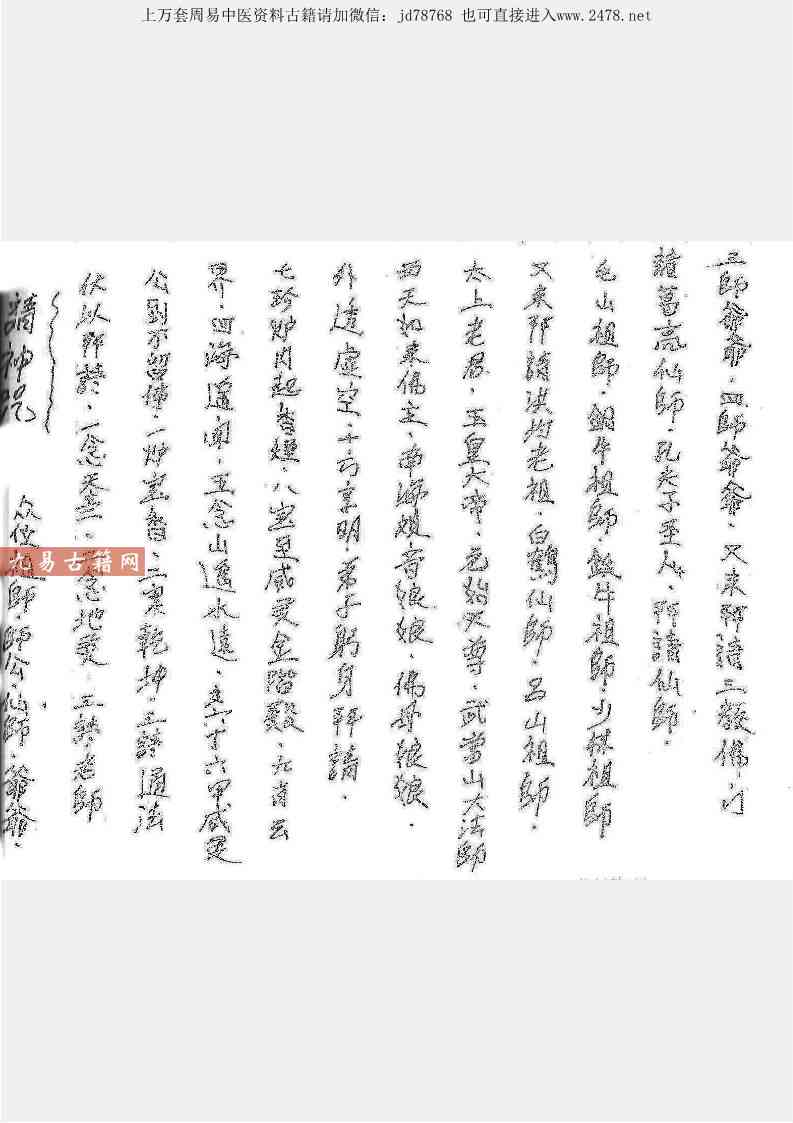 上万套周易中医资料古籍请加微信：jd78768 也可直接进入www.2478.net
請神咒
众位師·師公·仙師·爺爺·
伏以拜請·一念天灵·念地灵·三請老師
公到不留停·一炉宝香·三束乾坤·三請通法
界·四海遥闻·五念山遥水遠·六丁六甲威灵
七珍炉内起香烟·八宝至威灵金階殿·九霄云
外透虚空·十方享明·弟子躬身拜請·
西天如来佛主·南海观音娘娘·佛母娘娘·
太上老君·玉皇大帝·元始天尊·武当山大法師
又来拜請洪均老祖·白鶴仙師·吕山祖師·
毛山祖師·銅牛祖師·鉄牛祖師·少棋祖師
諸葛亮仙師·孔夫子至人·拜請仙師·
三師爺爺·四師爺爺·又来拜請三教佛·门
九易古籍网